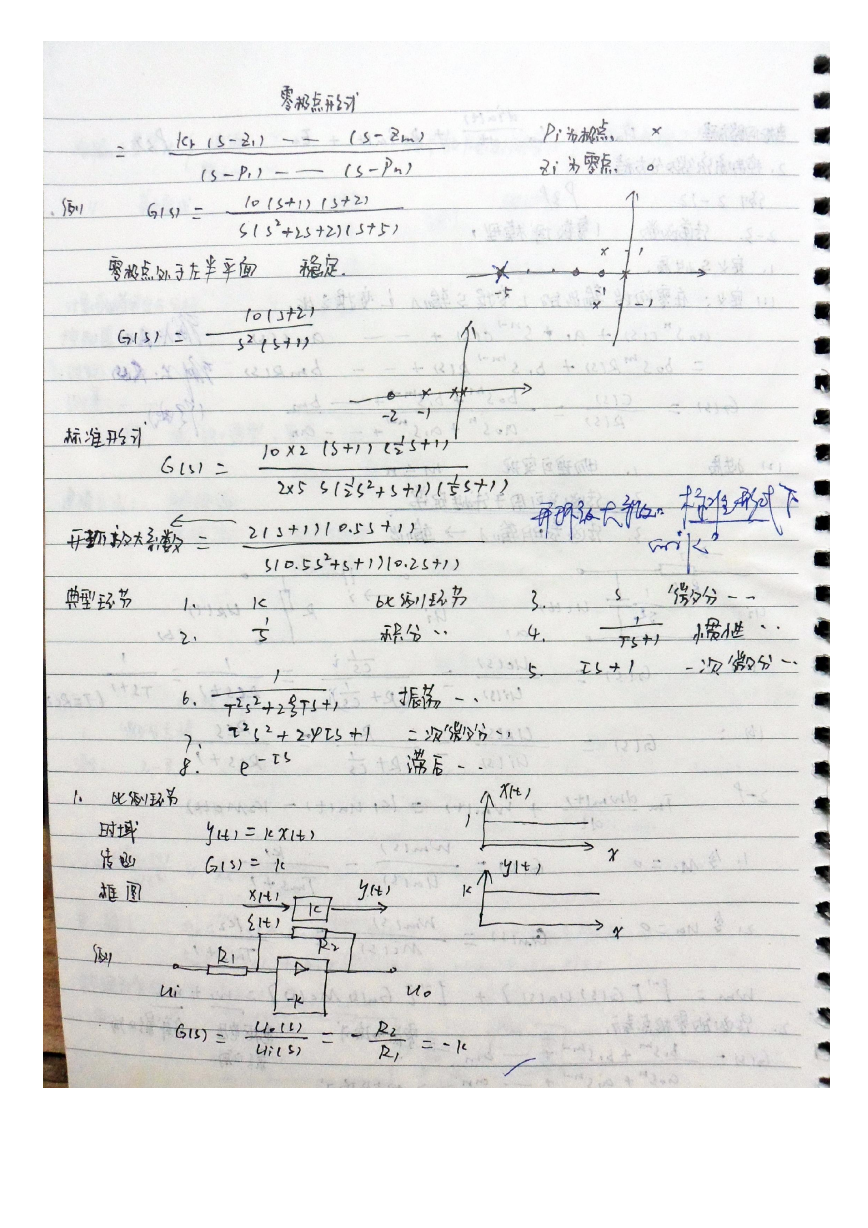 零极点形式
= Kr (s-z1) -- (s-zm) / (s-p1) -- (s-pn)
Pi为极点. ×
zi为零点. o
例 G(s) = 10(s+1)(s+2) / s(s²+2s+2)(s+5)
零极点处于左半平面 稳定.
-5 -1 1 -1
G(s) = 10(s+2) / s²(s+1)
-2 -1
标准形式
G(s) = 10×2 (s+1)(½s+1) / 2×5 s(½s²+s+1)(⅕s+1)
开环放大系数 = 2(s+1)(0.5s+1) / s(0.5s²+s+1)(0.2s+1)
开环放大系数: 标准形式下
典型环节 1. K 比例环节
2. 1/s 积分 ··
3. s 微分 --
4. 1/Ts+1 惯性 ··
5. τs+1 一次微分--
6. 1/T²s²+2ξTs+1 振荡 --
7. τ²s²+2φτs+1 二次微分··
8. e^-τs 滞后 --
1. 比例环节
时域 y(t) = K x(t)
传函 G(s) = K
框图 x(t) K y(t)
ξ(t)
x(t)
1
x
y(t)
K
x
例 R1 R2
ui -K uo
G(s) = Uo(s)/Ui(s) = - R2/R1 = -K